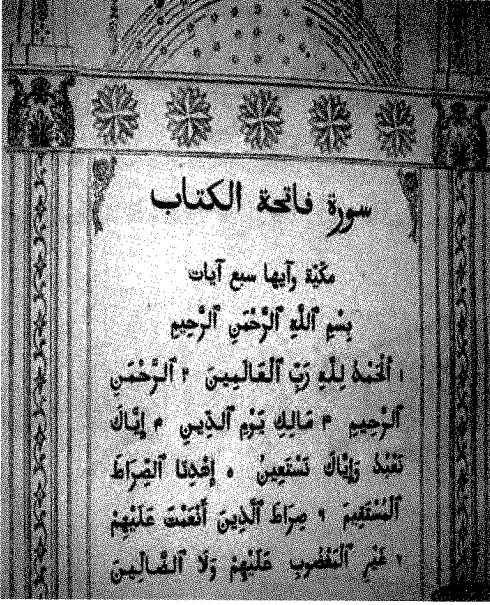 سورة فاتحة الكتاب
مكّيّة وآيها سبع آيات
بِسْمِ ٱللَّهِ ٱلرَّحْمَنِ ٱلرَّحِيمِ
١ أَلْحَمْدُ لِلَّهِ رَبِّ ٱلْعَالَمِينَ ٢ ٱلرَّحْمَنِ
ٱلرَّحِيمِ ٣ مَالِكِ يَوْمِ ٱلدِّينِ ٤ إِيَّاكَ
نَعْبُدُ وَإِيَّاكَ نَسْتَعِينُ ٥ إِهْدِنَا ٱلصِّرَاطَ
ٱلْمُسْتَقِيمَ ٦ صِرَاطَ ٱلَّذِينَ أَنْعَمْتَ عَلَيْهِمْ
٧ غَيْرِ ٱلْمَغْضُوبِ عَلَيْهِمْ وَلَا ٱلضَّالِّينَ